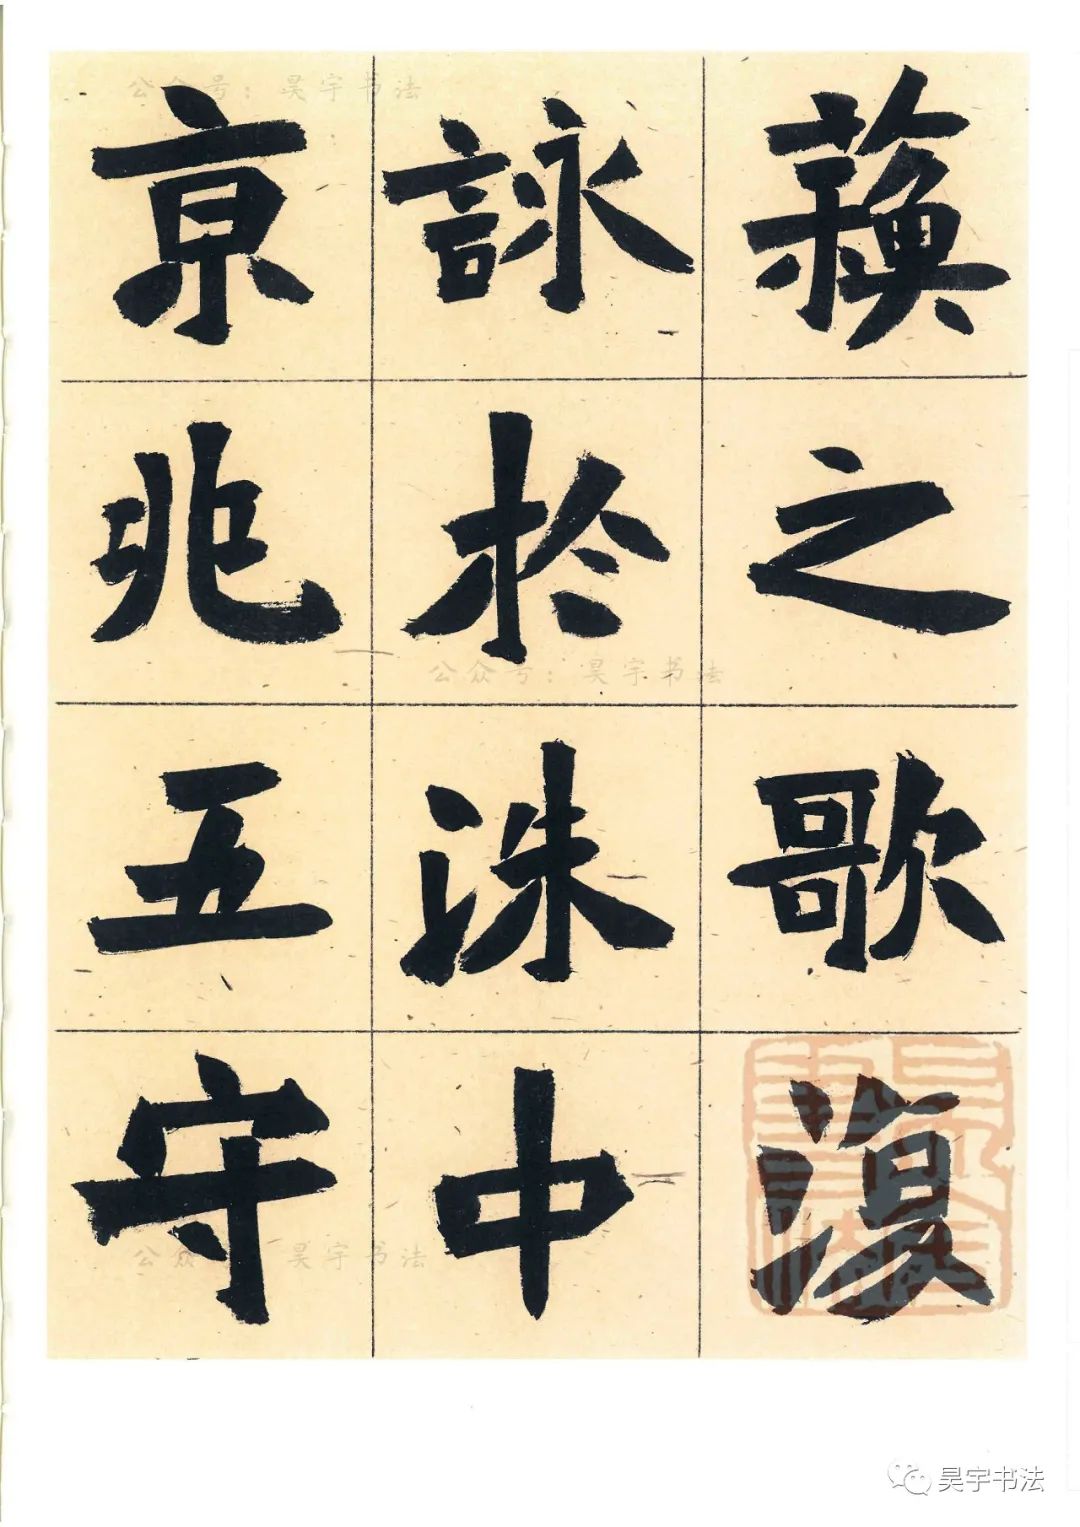 蘓之歌復
詠於洙中
亰兆五守
公众号：昊宇书法
公众号：昊宇书法
公众号：昊宇书法
昊宇书法